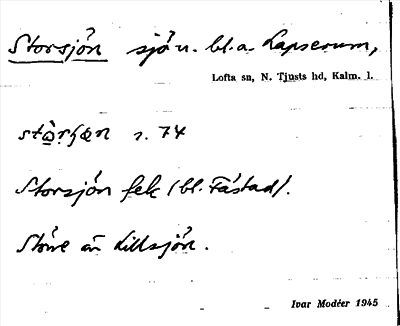 Storsjön sjö n. bl.a. Lapserum,
Lofta sn, N. Tjusts hd, Kalm. l.
s. 74
Storsjön fek (bl. Fästad).
Större än Lillsjön.
Ivar Modéer 1945